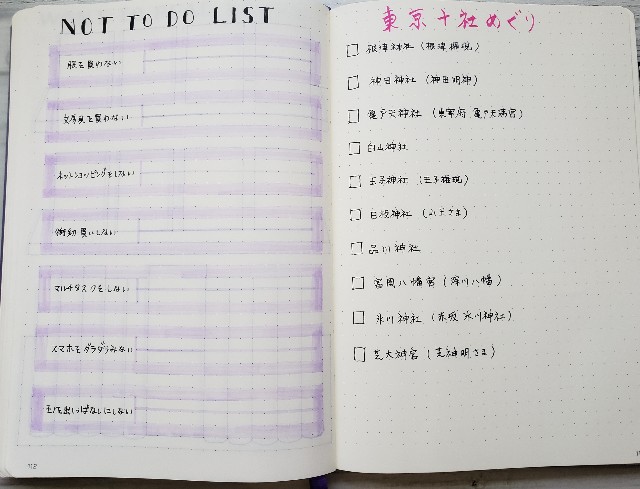 NOT TO DO LIST
服を買わない
文房具を買わない
ネットショッピングをしない
衝動買いしない
マルチタスクをしない
スマホをダラダラみない
モノを出しっぱなしにしない
118
東京十社めぐり
根津神社（根津権現）
神田神社（神田明神）
亀戸天神社（東宰府 亀戸天満宮）
白山神社
王子神社（王子権現）
日枝神社（山王さま）
品川神社
富岡八幡宮（深川八幡）
氷川神社（赤坂氷川神社）
芝大神宮（芝神明さま）